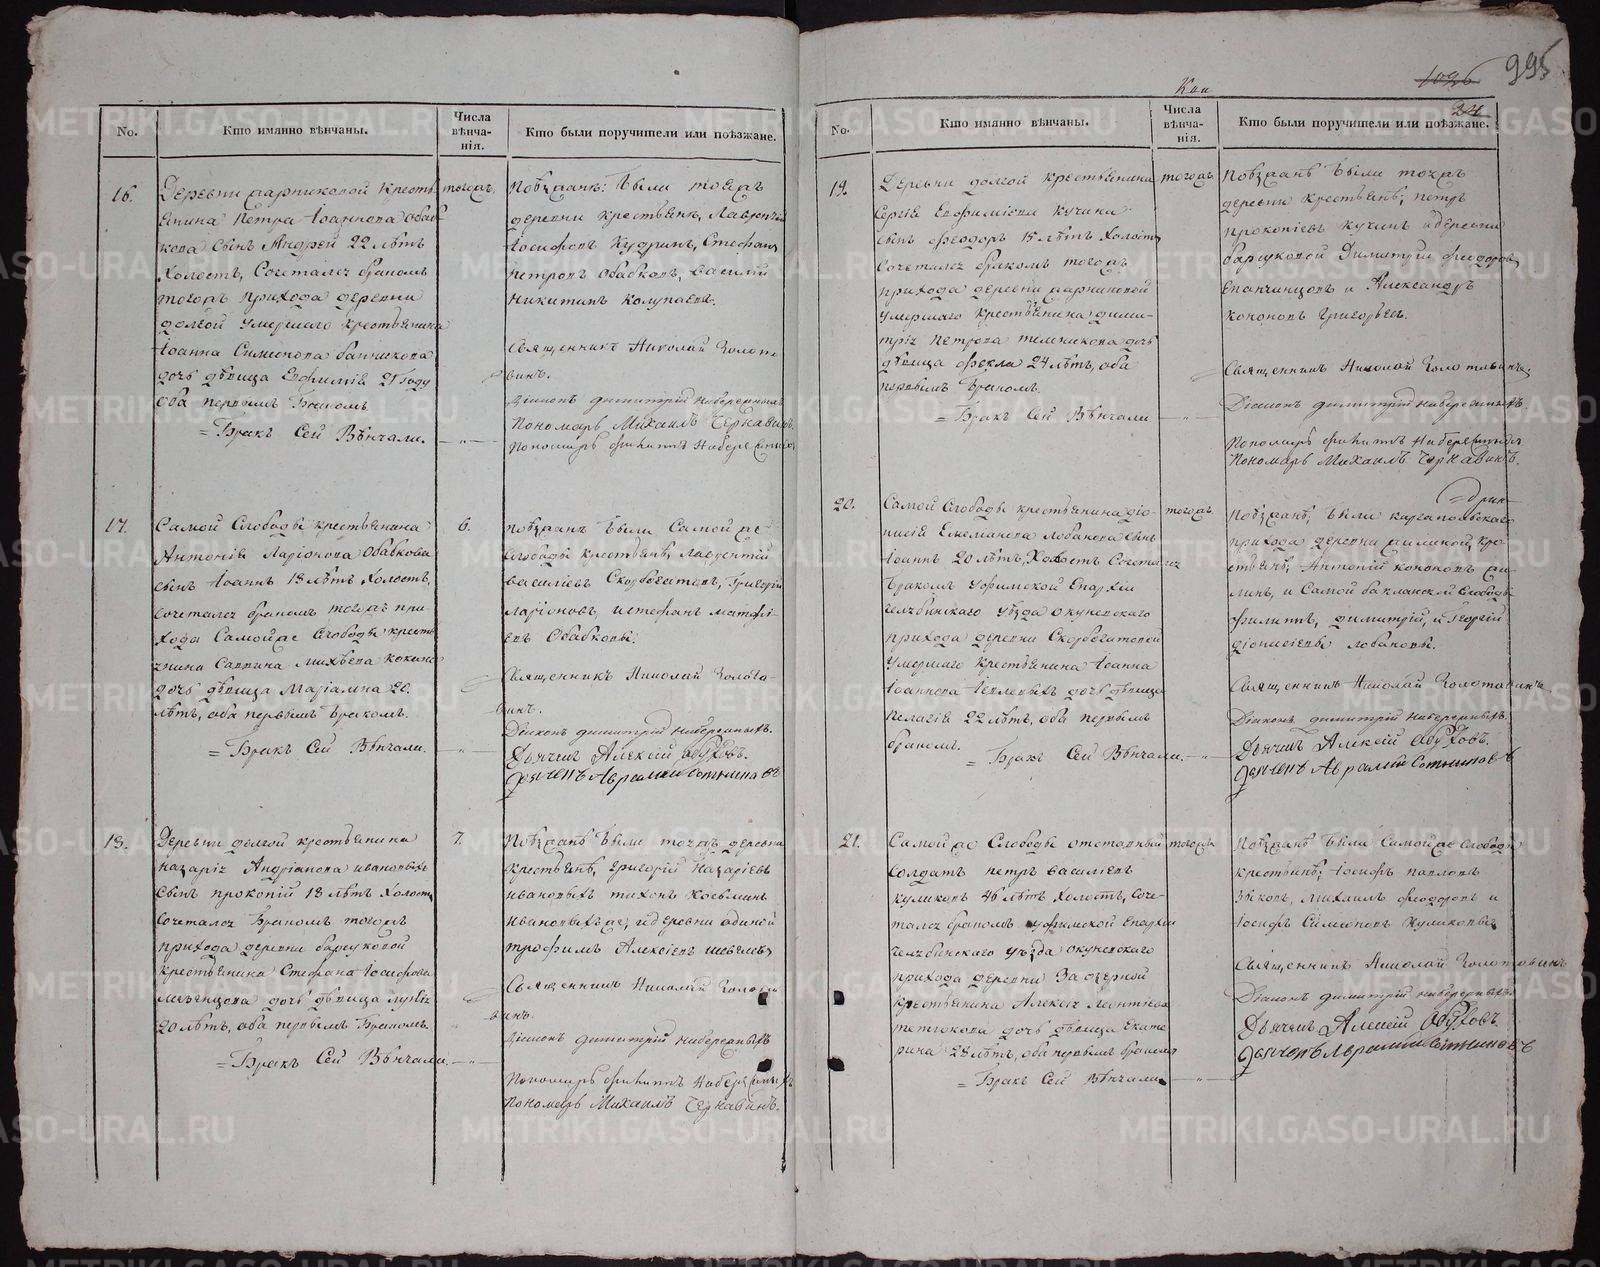 995
1026
24
No.
Кто имянно вѣнчаны.
Числа вѣнча-
нія.
Кто были поручители или поѣзжане.
16.
Деревни
Петра Іоаннова
сынъ Андрей 22 лѣтъ
холостъ, сочетался бракомъ
тогожъ прихода деревни
долгой умершаго крестьянина
Іоанна Симионова банникова
дочь дѣвица Евфимія 21 году
оба первымъ бракомъ
= Бракъ Сей Вѣнчали.
тогожъ
Поѣзжанѣ: были тоежъ
деревни крестьянѣ, Лаврентій
Іосифовъ Кудринъ, Стефанъ
Петровъ Обабковъ, василій
Никитинъ колупаевъ.
Священникъ Николай Золото-
винъ.
Діаконъ димитрій набережныхъ
Пономарь Михаилъ Чернавинъ.
Пономарь филиппъ Набережныхъ
17.
Самой Слободы крестьянина
Антонія Ларіонова Обабкова
сынъ Іоаннъ 18 лѣтъ холостъ,
сочетался бракомъ тогожъ при-
хода Самойже Слободы кресть-
янина Саввина Михѣева
дочь дѣвица Маріамна 20.
лѣтъ, оба первымъ бракомъ.
= Бракъ Сей Вѣнчали.
6.
поѣзжанѣ были Самой же
Слободы крестьянѣ, Лаврентій
василіевъ Скоробогатовъ, Григорій
ларіоновъ, и стефанъ матфі-
евъ Обабковы.
Священникъ Николай Золото-
винъ.
Діаконъ димитрій набережныхъ.
Дьячекъ Алексій Обуховъ.
Дьячекъ Аврамій Сотниковъ
18.
Деревни долгой крестьянина
назарія Андріанова ивановыхъ
сынъ прокопій 18 лѣтъ холостъ
сочетался бракомъ тогожъ
прихода деревни барсуковой
крестьянина Стефана Іосифова
дочь дѣвица
20 лѣтъ, оба первымъ бракомъ.
= Бракъ Сей Вѣнчали.
7.
Поѣзжанѣ были тоежъ деревни
крестьянѣ, григорій Назаріевъ
ивановыхъ тихонъ
ивановыхъ же, и деревни
трофимъ Алексіевъ шевелевъ
Священникъ Николай Золото-
винъ.
діаконъ димитрій набережныхъ
Пономарь филиппъ Набережныхъ
Пономарь Михаилъ Чернавинъ.
No.
Кто имянно вѣнчаны.
Числа вѣнча-
нія.
Кто были поручители или поѣзжане.
19.
Деревни долгой крестьянина
Сергія Евфиміева кучина
сынъ феодоръ 15 лѣтъ холостъ
сочетался бракомъ тогожъ
прихода деревни
умершаго крестьянина дими-
трія Петрова дочь
дѣвица фекла 24 лѣтъ, оба
первымъ бракомъ.
= Бракъ Сей Вѣнчали
тогожъ
Поѣзжанѣ были тоежъ
деревни крестьянѣ, петръ
прокопіевъ кучинъ и деревни
барсуковой Димитрій феодоровъ
Епанчинцовъ и Александръ
кононовъ григорьевъ.
Священникъ Николай Золотавинъ.
Діаконъ димитрій набережныхъ.
Пономарь филиппъ Набережныхъ
Пономарь Михаилъ Чернавинъ.
20.
Самой Слободы крестьянина діо-
нисія Емелианова лобанова сынъ
Іоаннъ 20 лѣтъ, Холостъ Сочетался
бракомъ Уфимской Епархіи
челѣбинскаго уѣзда окуневскаго
прихода деревни Скоробогатовой
умершаго крестьянина Іоанна
Іоаннова теплевыхъ дочь дѣвица
Пелагія 22 лѣтъ, оба первымъ
бракомъ.
= Бракъ Сей Вѣнчали.
тогожъ
Поѣзжанѣ, были каргапольскаго
прихода деревни кре-
стьянѣ, Антоній кононовъ
и Самой бакланской Слободы
филиппъ, димитрій, и Георгій
діонисіевы лобановы.
Священникъ Николай Золотавинъ
Діаконъ димитрій набережныхъ.
Дьячекъ Алексій Обуховъ.
Дьячекъ Аврамій Сотниковъ
21.
Самой же Слободы отставный
солдатъ петръ василіевъ
куликовъ 46 лѣтъ холостъ, соче-
тался бракомъ уфимской Епархіи
челѣбинскаго уѣзда окуневскаго
прихода деревни Заозерной
крестьянина Алексія
дочь дѣвица Екате-
рина 28 лѣтъ, оба первымъ бракомъ
= Бракъ Сей Вѣнчали.
тогожъ
Поѣзжанѣ были Самой же Слободы
крестьянѣ, Іосифъ павловъ
Зыковъ, михаилъ феодоровъ и
Іосифъ Симеоновъ Куликовы
Священникъ Николай Золотовинъ
Діаконъ димитрій набережныхъ
Дьячекъ Алексій Обуховъ.
Дьячекъ Аврамій Сотниковъ
METRIKI.GASO-URAL.RU